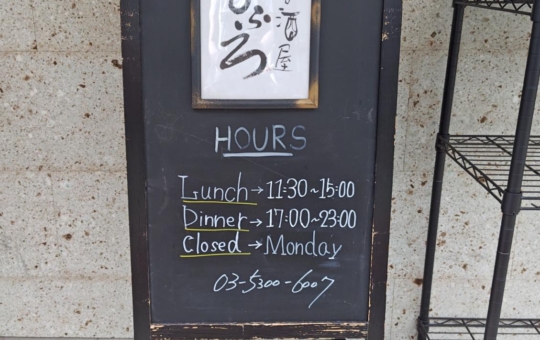 酒屋
ぶらり
HOURS
Lunch → 11:30~15:00
Dinner → 17:00~23:00
Closed → Monday
03-5300-6007